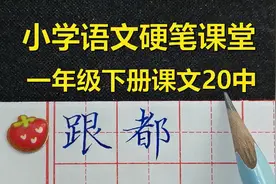 小学语文硬笔课堂
一年级下册课文20中
跟都